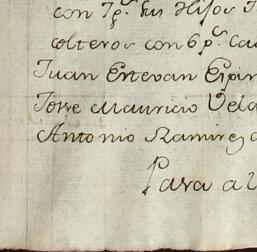 con 7 p.s sus Hijos J
colteros con 6 p.s Ca
Juan Estevan Espin
Torre Mauricio Vela
Antonio Ramirez
Para a